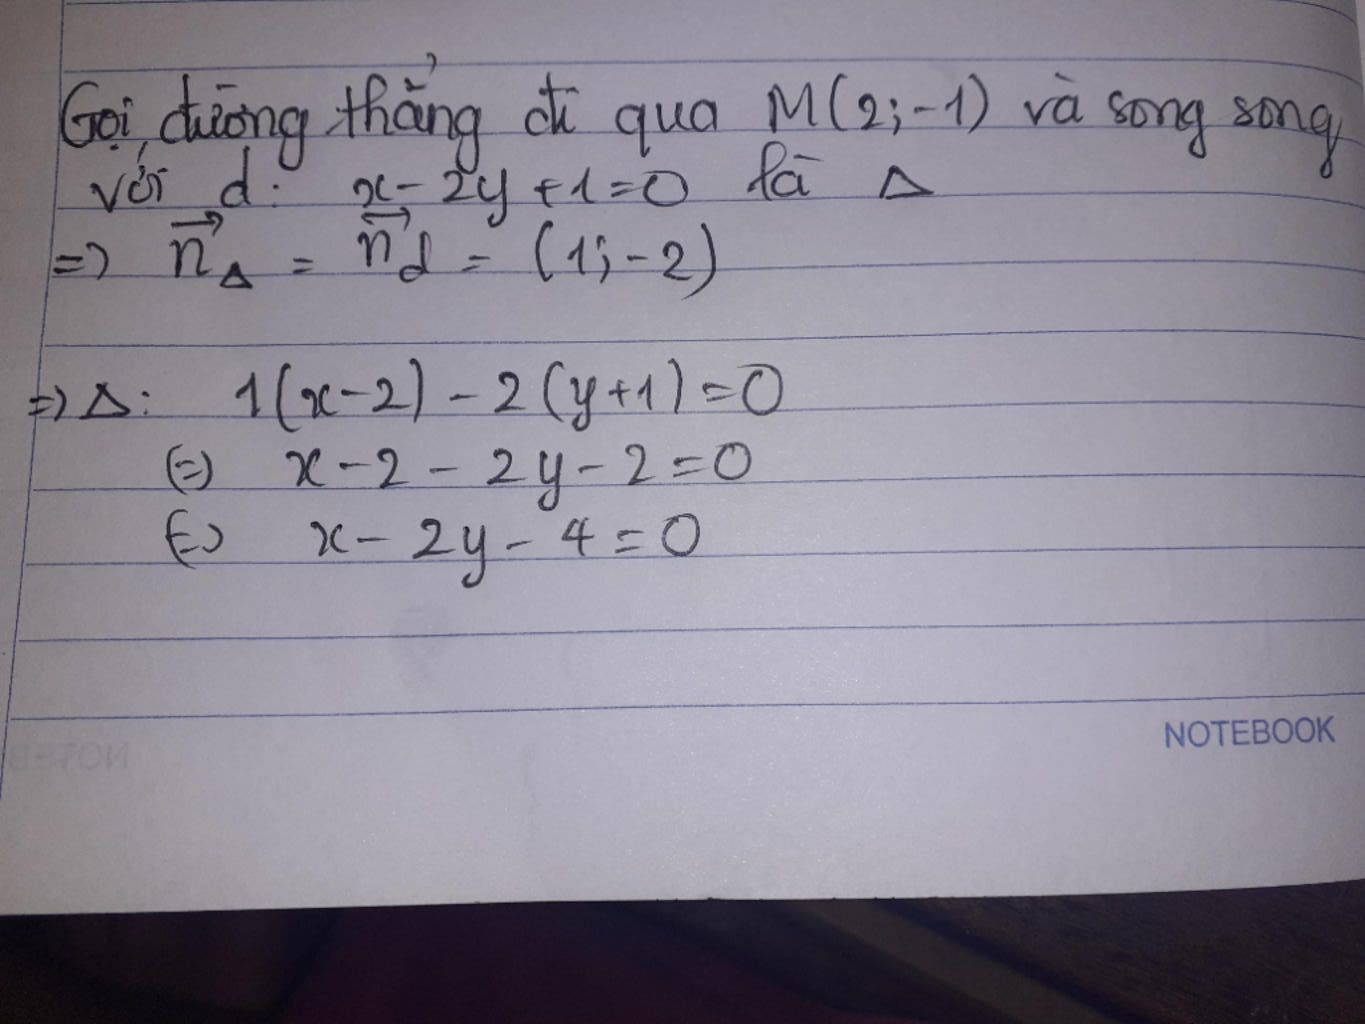 Gọi đường thẳng đi qua M(2;-1) và song song
với d: x-2y+1=0 là Δ
=> n⃗_Δ = n⃗_d = (1;-2)
=> Δ: 1(x-2)-2(y+1)=0
(=) x-2-2y-2=0
(=) x-2y-4=0
NOTEBOOK